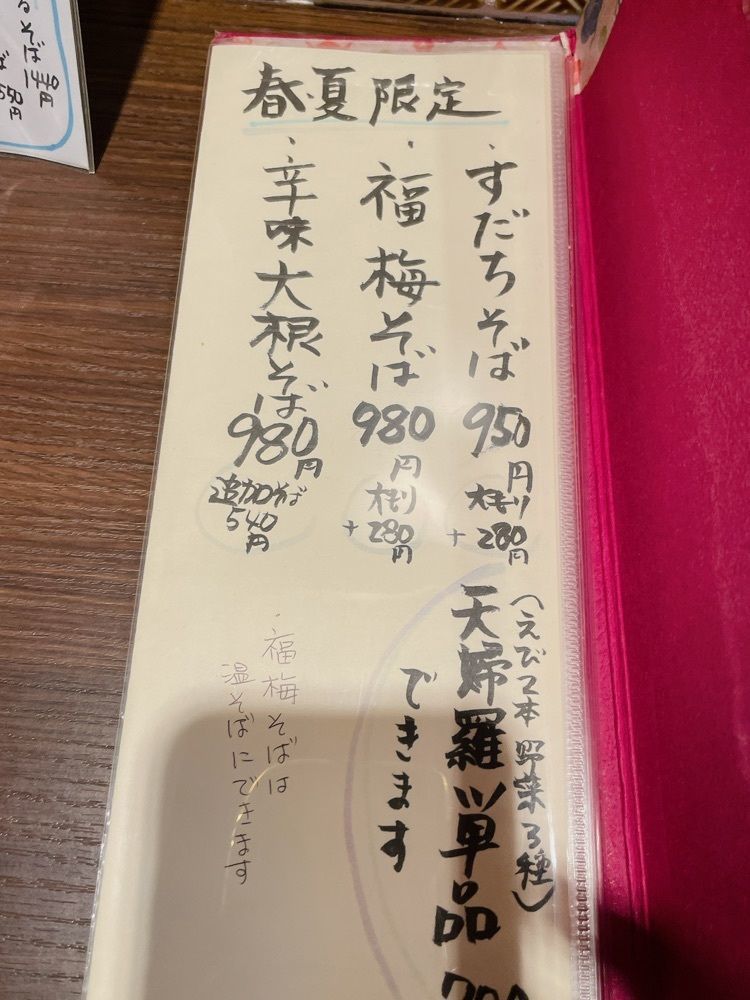 春・夏限定
・すだちそば
950円
大モリ
+280円
・福梅そば
980円
大モリ
+280円
・辛味大根そば
980円
追加そば
540円
(えび2本 野菜3種)
天婦羅単品
できます
・福梅そばは
温そばにできます
るそば1440円
550円